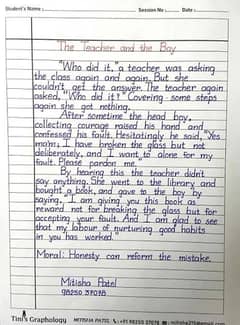 Student's Name :
Session No : Date :
The Teacher and the Boy
"Who did it," a teacher was asking
the class again and again. But she
couldn't get the answer. The teacher again
asked, "Who did it?" Covering some steps
again she got nothing.
After sometime the head boy,
collecting courage raised his hand and
confessed his fault. Hesitatingly he said, "Yes
ma'm, I have broken the glass but not
deliberately, and I want to alone for my
fault. Please pardon me."
By hearing this the teacher didn't
say anything. She went to the library and
bought a book, and gave to the boy by
saying, "I am giving you this book as
reward not for breaking the glass but for
accepting your fault. And I am glad to see
that my labour of nurturing good habits
in you has worked."
Moral: Honesty can reform the mistake.
Mitisha Patel
98250 37078
Tini's Graphology MITISHA PATEL +91 98250 37078